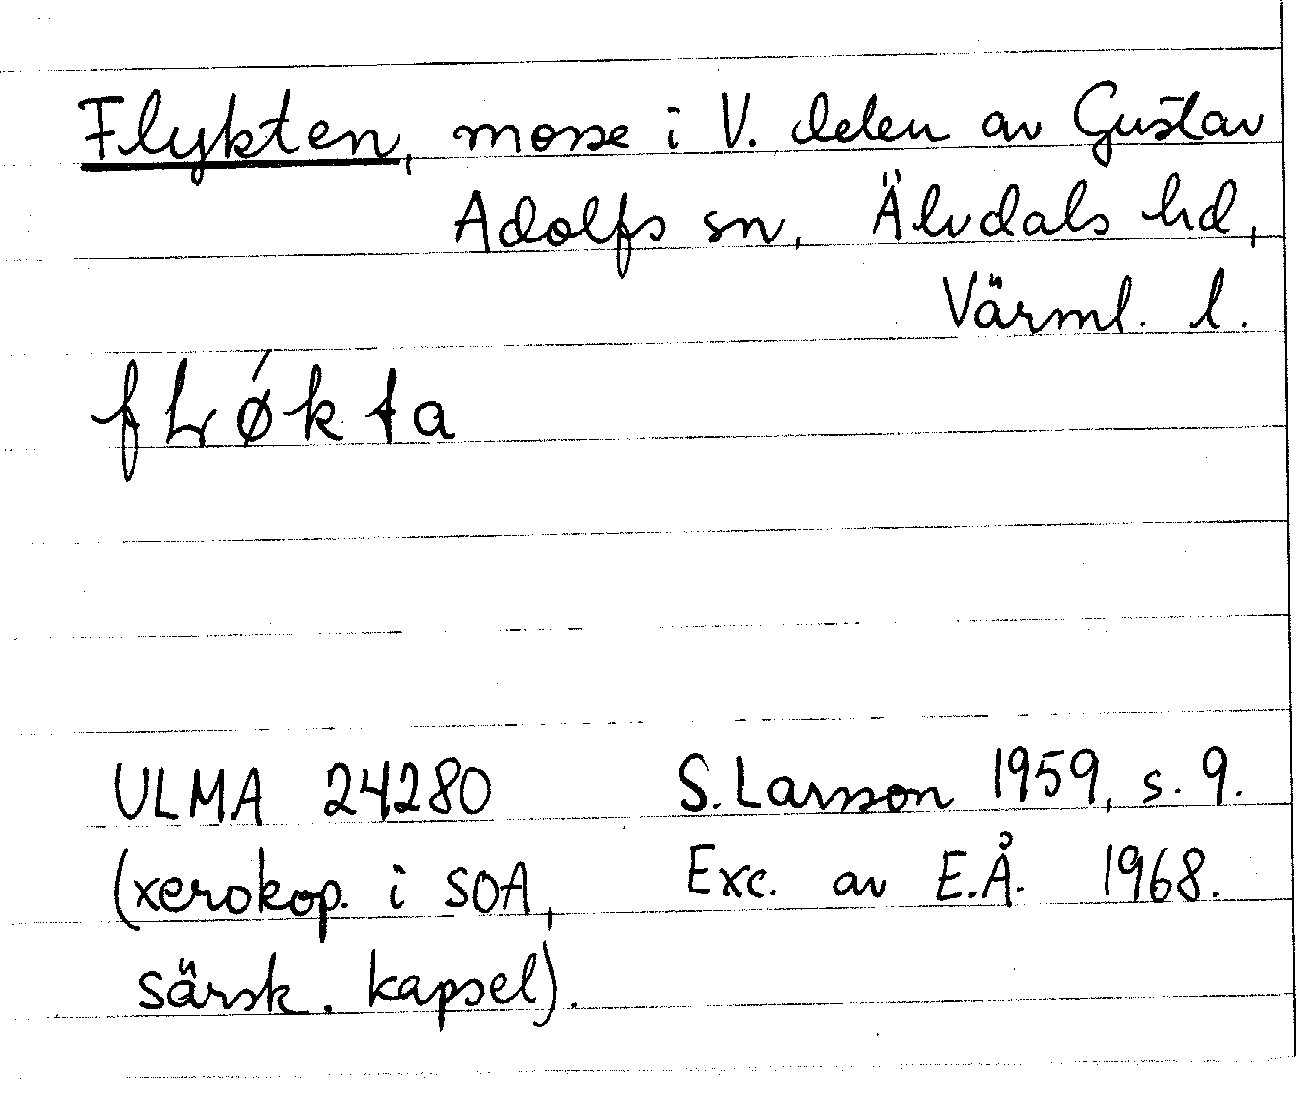 Flykten, mosse i V. delen av Gustav
Adolfs sn, Älvdals hd,
Värml. l.
fLǿkta
ULMA 24280 S. Larsson 1959, s. 9.
(xerokop. i SOA, Exc. av E.Å. 1968.
särsk. kapsel).